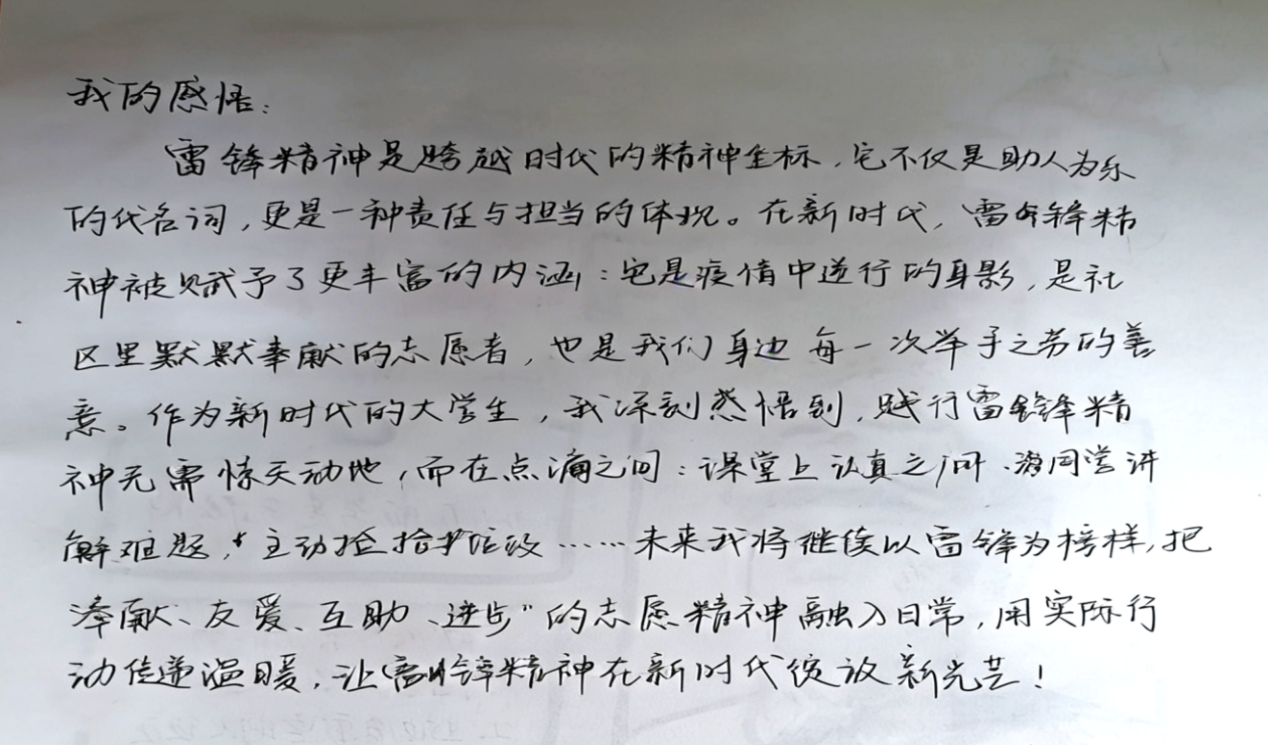 我的感悟：
雷锋精神是跨越时代的精神坐标，它不仅是助人为乐
的代名词，更是一种责任与担当的体现。在新时代，雷锋精
神被赋予了更丰富的内涵：它是疫情中逆行的身影，是社
区里默默奉献的志愿者，也是我们身边每一次举手之劳的善
意。作为新时代的大学生，我深刻感悟到，践行雷锋精
神无需惊天动地，而在点滴之间：课堂上认真之问、为同学讲
解难题，主动捡拾垃圾……未来我将继续以雷锋为榜样，把
奉献、友爱、互助、进步”的志愿精神融入日常，用实际行
动传递温暖，让雷锋精神在新时代绽放新光芒！